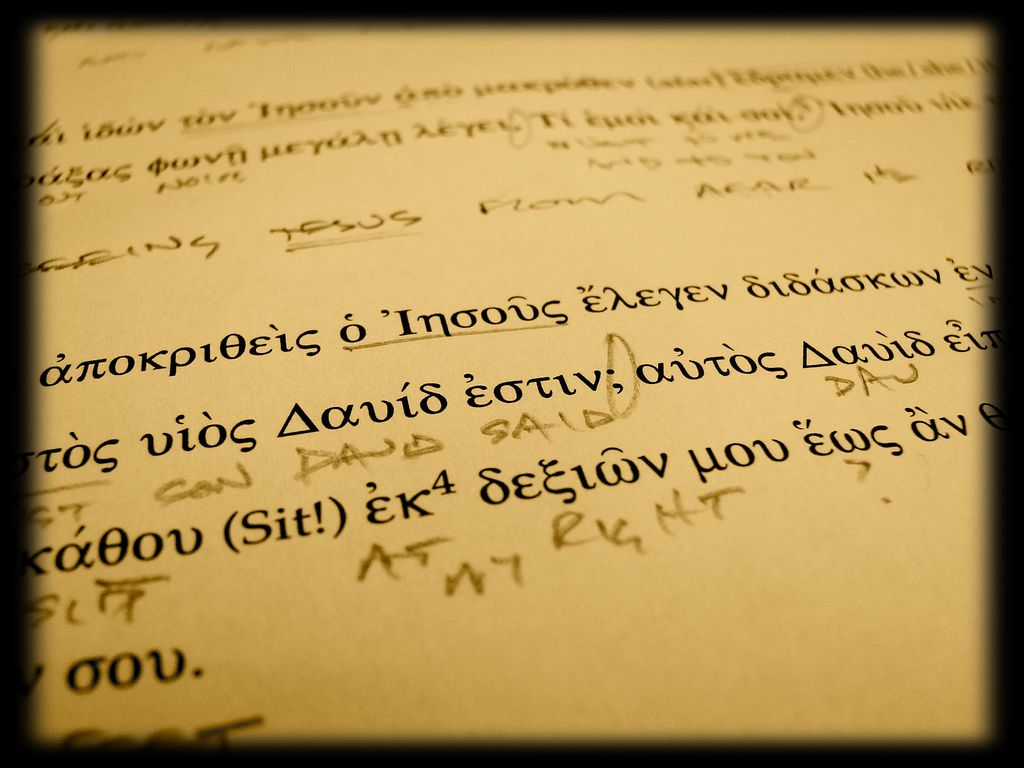 ἰδών τὸν Ἰησοῦν ἀπὸ μακρόθεν (afar) ἔδραμεν (he / she /
φωνῇ μεγάλῃ λέγει, Τί ἐμοὶ καὶ σοι, Ἰησοῦ υἱὲ
OUT NOISE WHAT IS ME
AND TO YOU
SEEING JESUS FROM AFAR HE
ἀποκριθεὶς ὁ Ἰησοῦς ἔλεγεν διδάσκων ἐν
υἱὸς Δαυίδ ἐστιν; αὐτὸς Δαυὶδ
SON DAVID SAID DAV
κάθου (Sit!) ἐκ⁴ δεξιῶν μου ἕως ἂν
SIT AT MY RIGHT ?
σου.
FEET